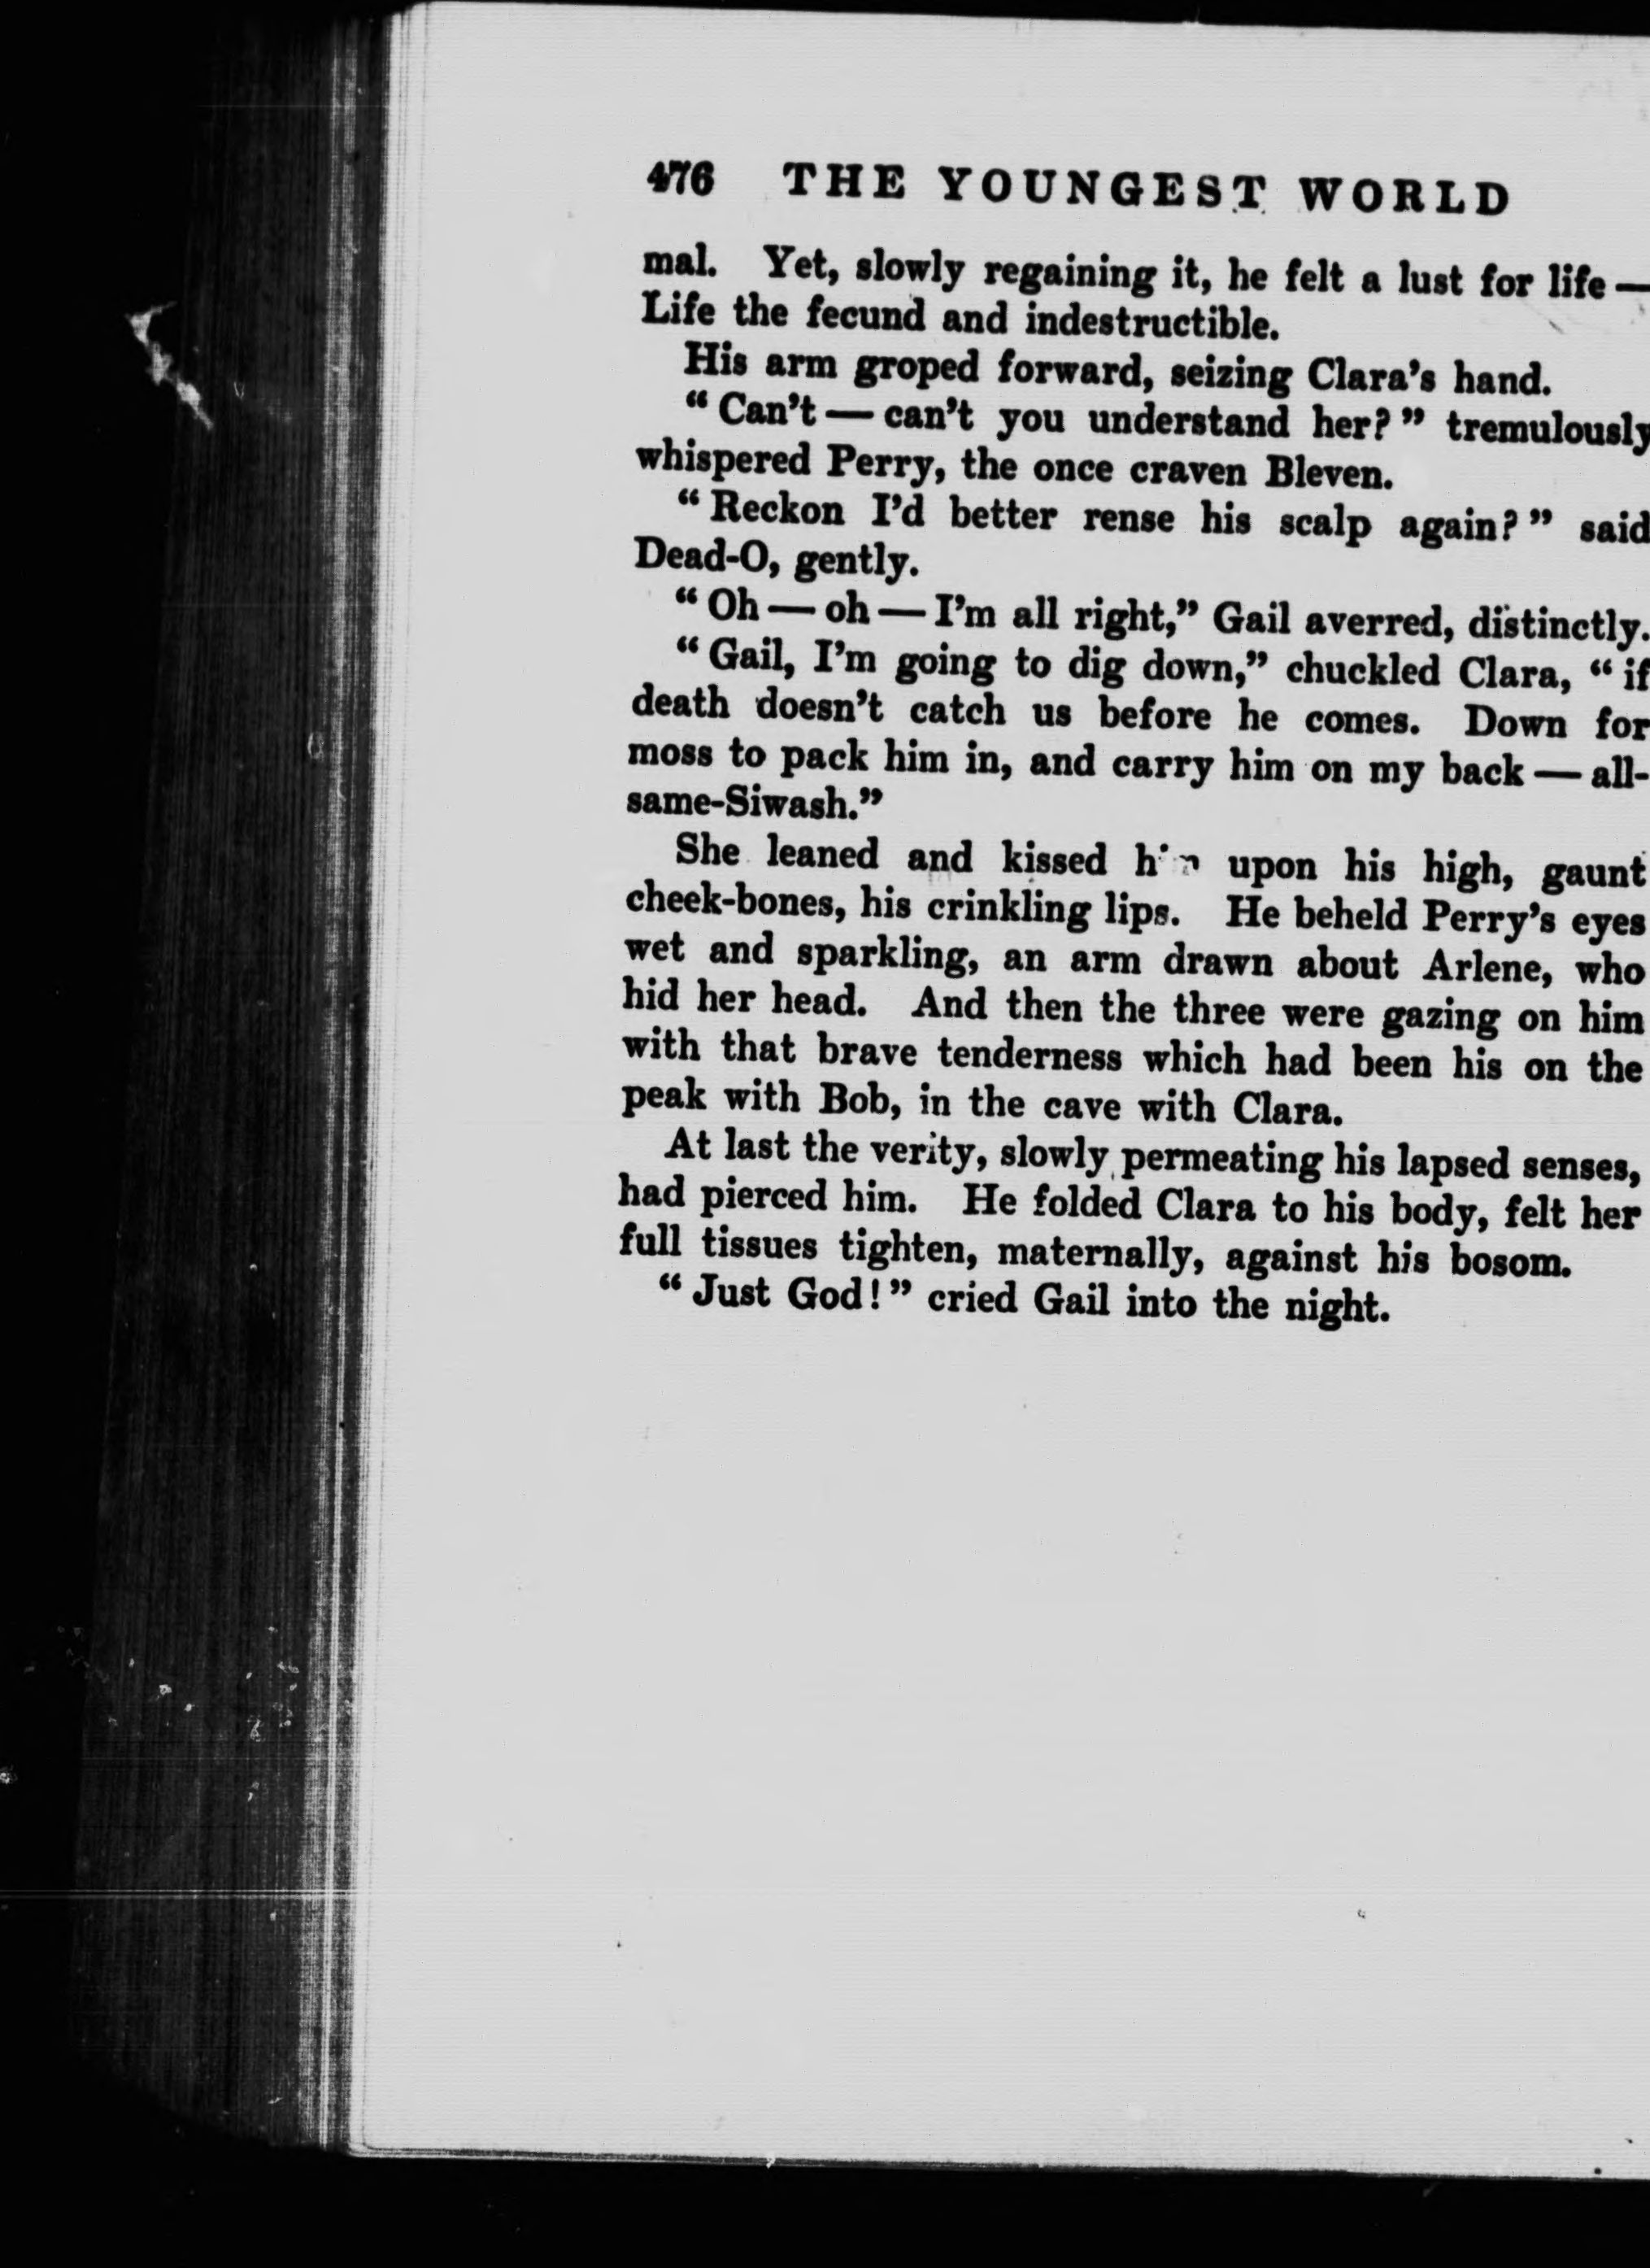 476 THE YOUNGEST WORLD
mal. Yet, slowly regaining it, he felt a lust for life —
Life the fecund and indestructible.
His arm groped forward, seizing Clara's hand.
“Can't — can't you understand her?” tremulously
whispered Perry, the once craven Bleven.
“Reckon I'd better rense his scalp again?” said
Dead-O, gently.
“Oh — oh — I'm all right,” Gail averred, distinctly.
“Gail, I'm going to dig down,” chuckled Clara, “if
death doesn't catch us before he comes. Down for
moss to pack him in, and carry him on my back — all-
same-Siwash.”
She leaned and kissed him upon his high, gaunt
cheek-bones, his crinkling lips. He beheld Perry's eyes
wet and sparkling, an arm drawn about Arlene, who
hid her head. And then the three were gazing on him
with that brave tenderness which had been his on the
peak with Bob, in the cave with Clara.
At last the verity, slowly permeating his lapsed senses,
had pierced him. He folded Clara to his body, felt her
full tissues tighten, maternally, against his bosom.
“Just God!” cried Gail into the night.